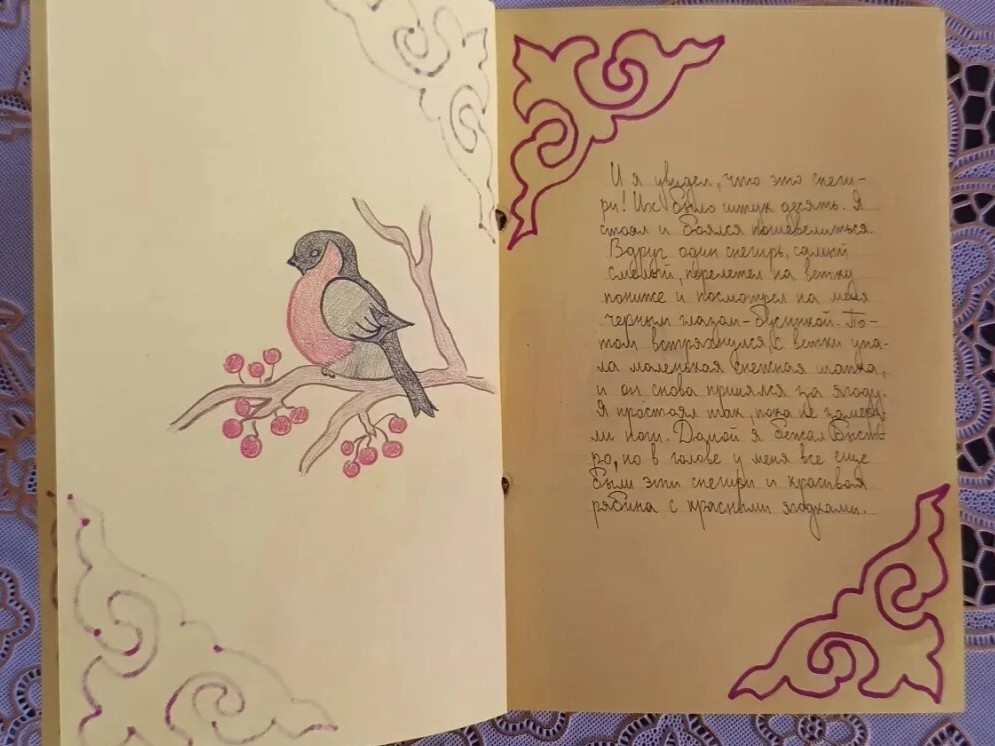 И я увидел, что это снеги-
ри! Их было штук десять. Я
стоял и боялся пошевелиться.
Вдруг один снегирь, самый
смелый, перелетел на ветку
пониже и посмотрел на меня
черным глазом-бусинкой. По-
том встряхнулся, с ветки упа-
ла маленькая снежная шапка,
и он снова принялся за ягоду.
Я простоял так, пока не замерз-
ли ноги. Домой я бежал быст-
ро, но в голове у меня все еще
были эти снегири и красивая
рябина с красными ягодками.